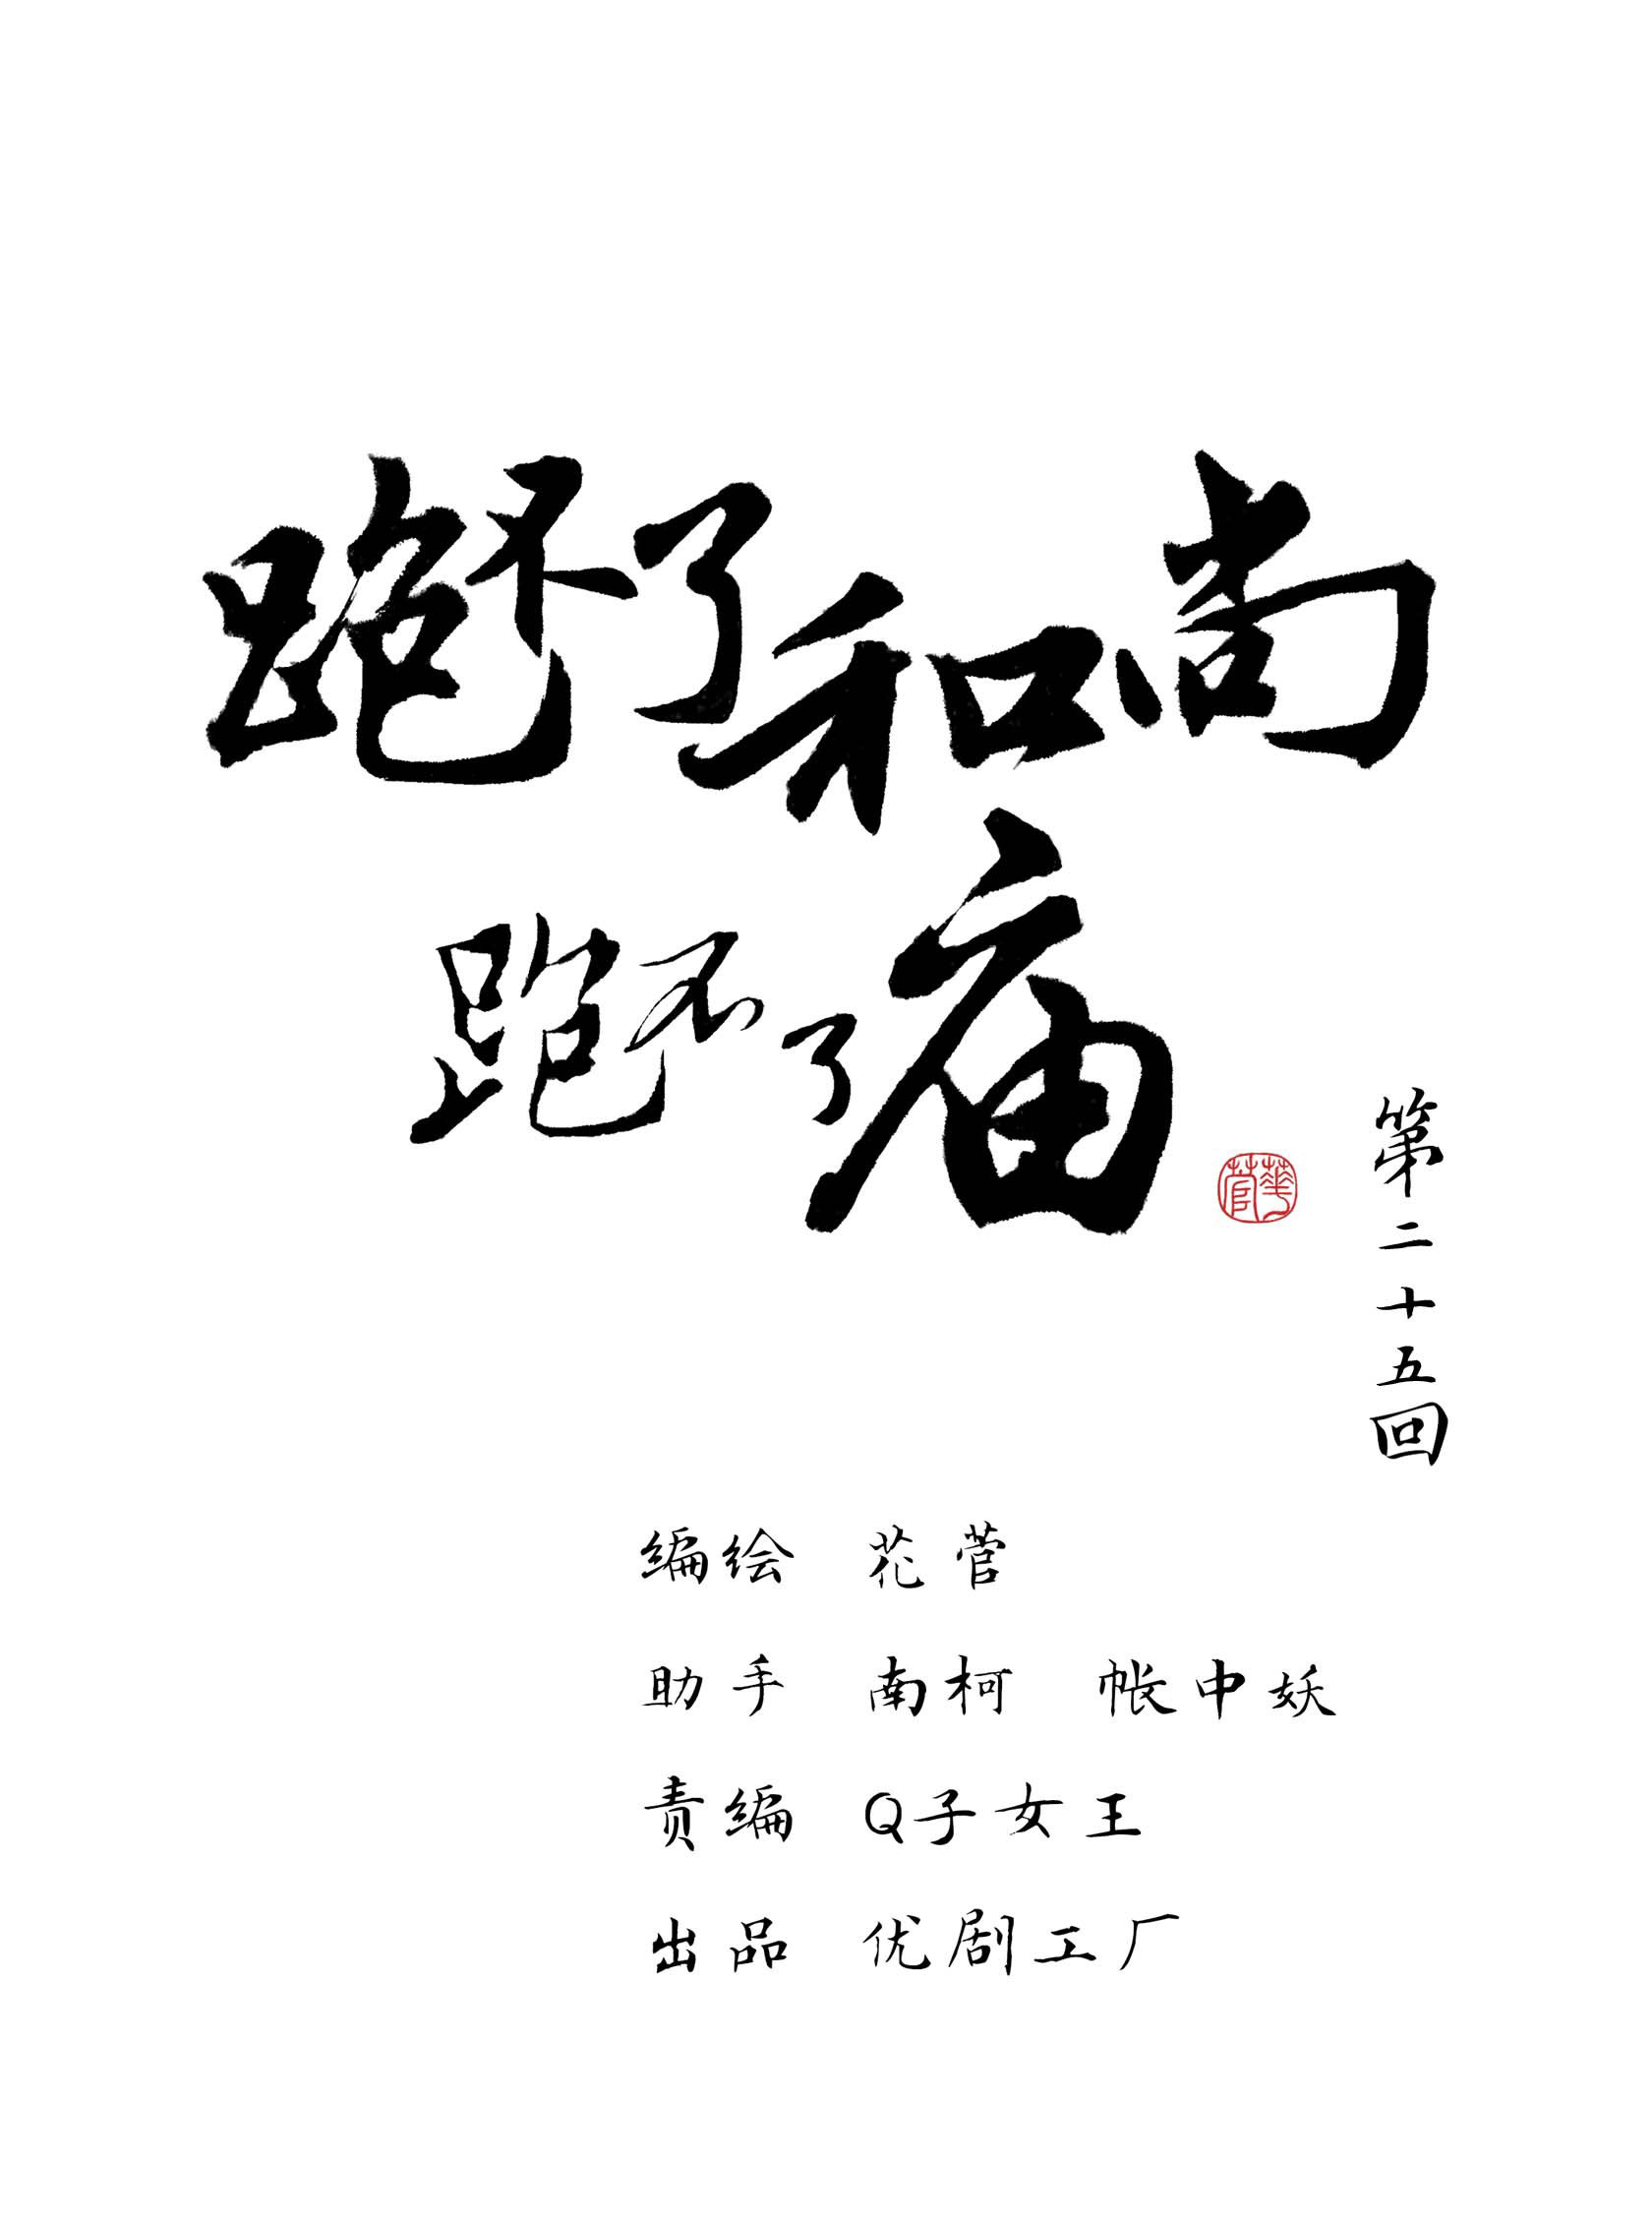 跑不了和尚
跑不了庙
華菅
第二十五回
编绘 花菅
助手 南柯 帐中妖
责编 Q子女王
出品 优剧工厂